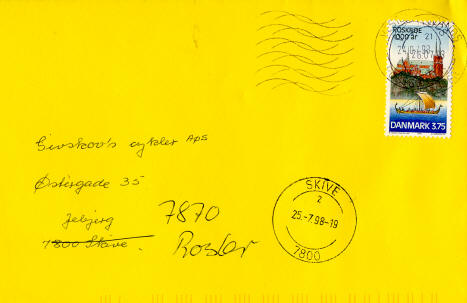 ROSKILDE
1000 år
DANMARK 3.75
cykler ApS
Østergade 35
Jebjerg
7800 Skive.
7870
Roslev
SKIVE
2
25.-7.98-19
7800